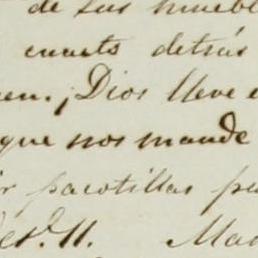 de sus muebl
cuarto detrás
uen. ¡Dios lleve e
que nos mande
ir pacotillas pa
des.º 11. Mad